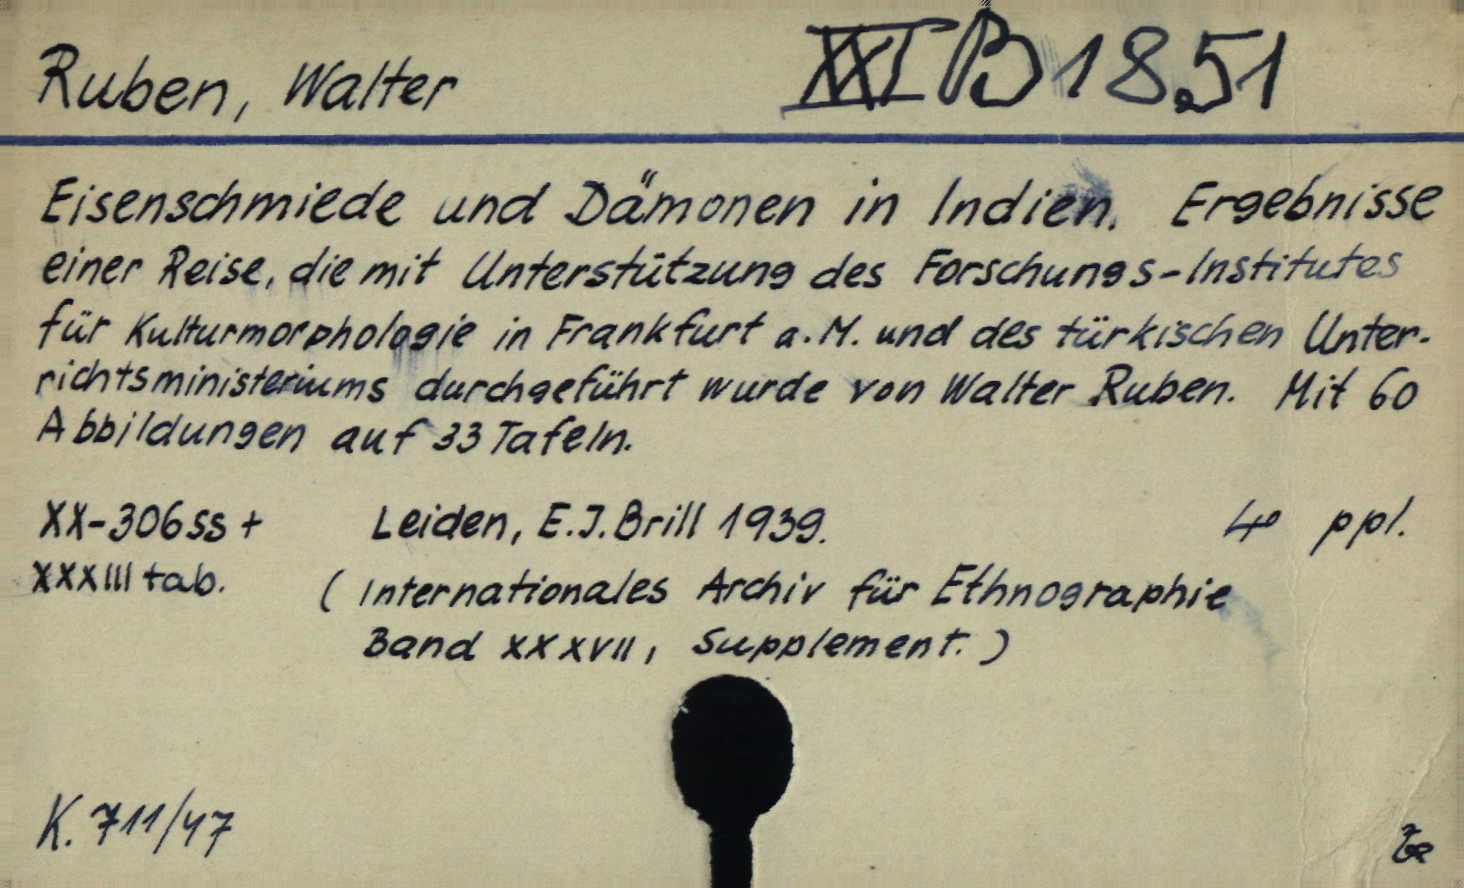 Ruben, Walter XXI B 1851
Eisenschmiede und Dämonen in Indien. Ergebnisse
einer Reise, die mit Unterstützung des Forschungs-Institutes
für Kulturmorphologie in Frankfurt a. M. und des türkischen Unter-
richtsministeriums durchgeführt wurde von Walter Ruben. Mit 60
Abbildungen auf 33 Tafeln.
XX-306 ss + Leiden, E. J. Brill 1939. 4° ppl.
XXXIII tab. ( Internationales Archiv für Ethnographie
Band XXXVII, Supplement. )
K. 711/47